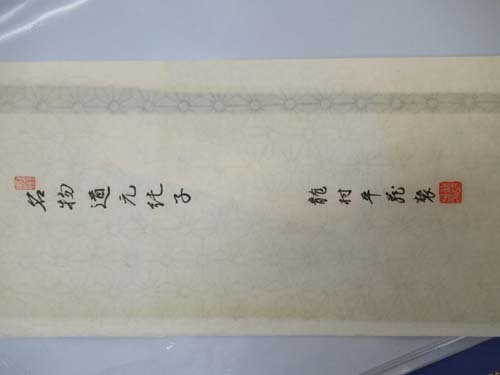 名物道元純子
龍村平蔵製